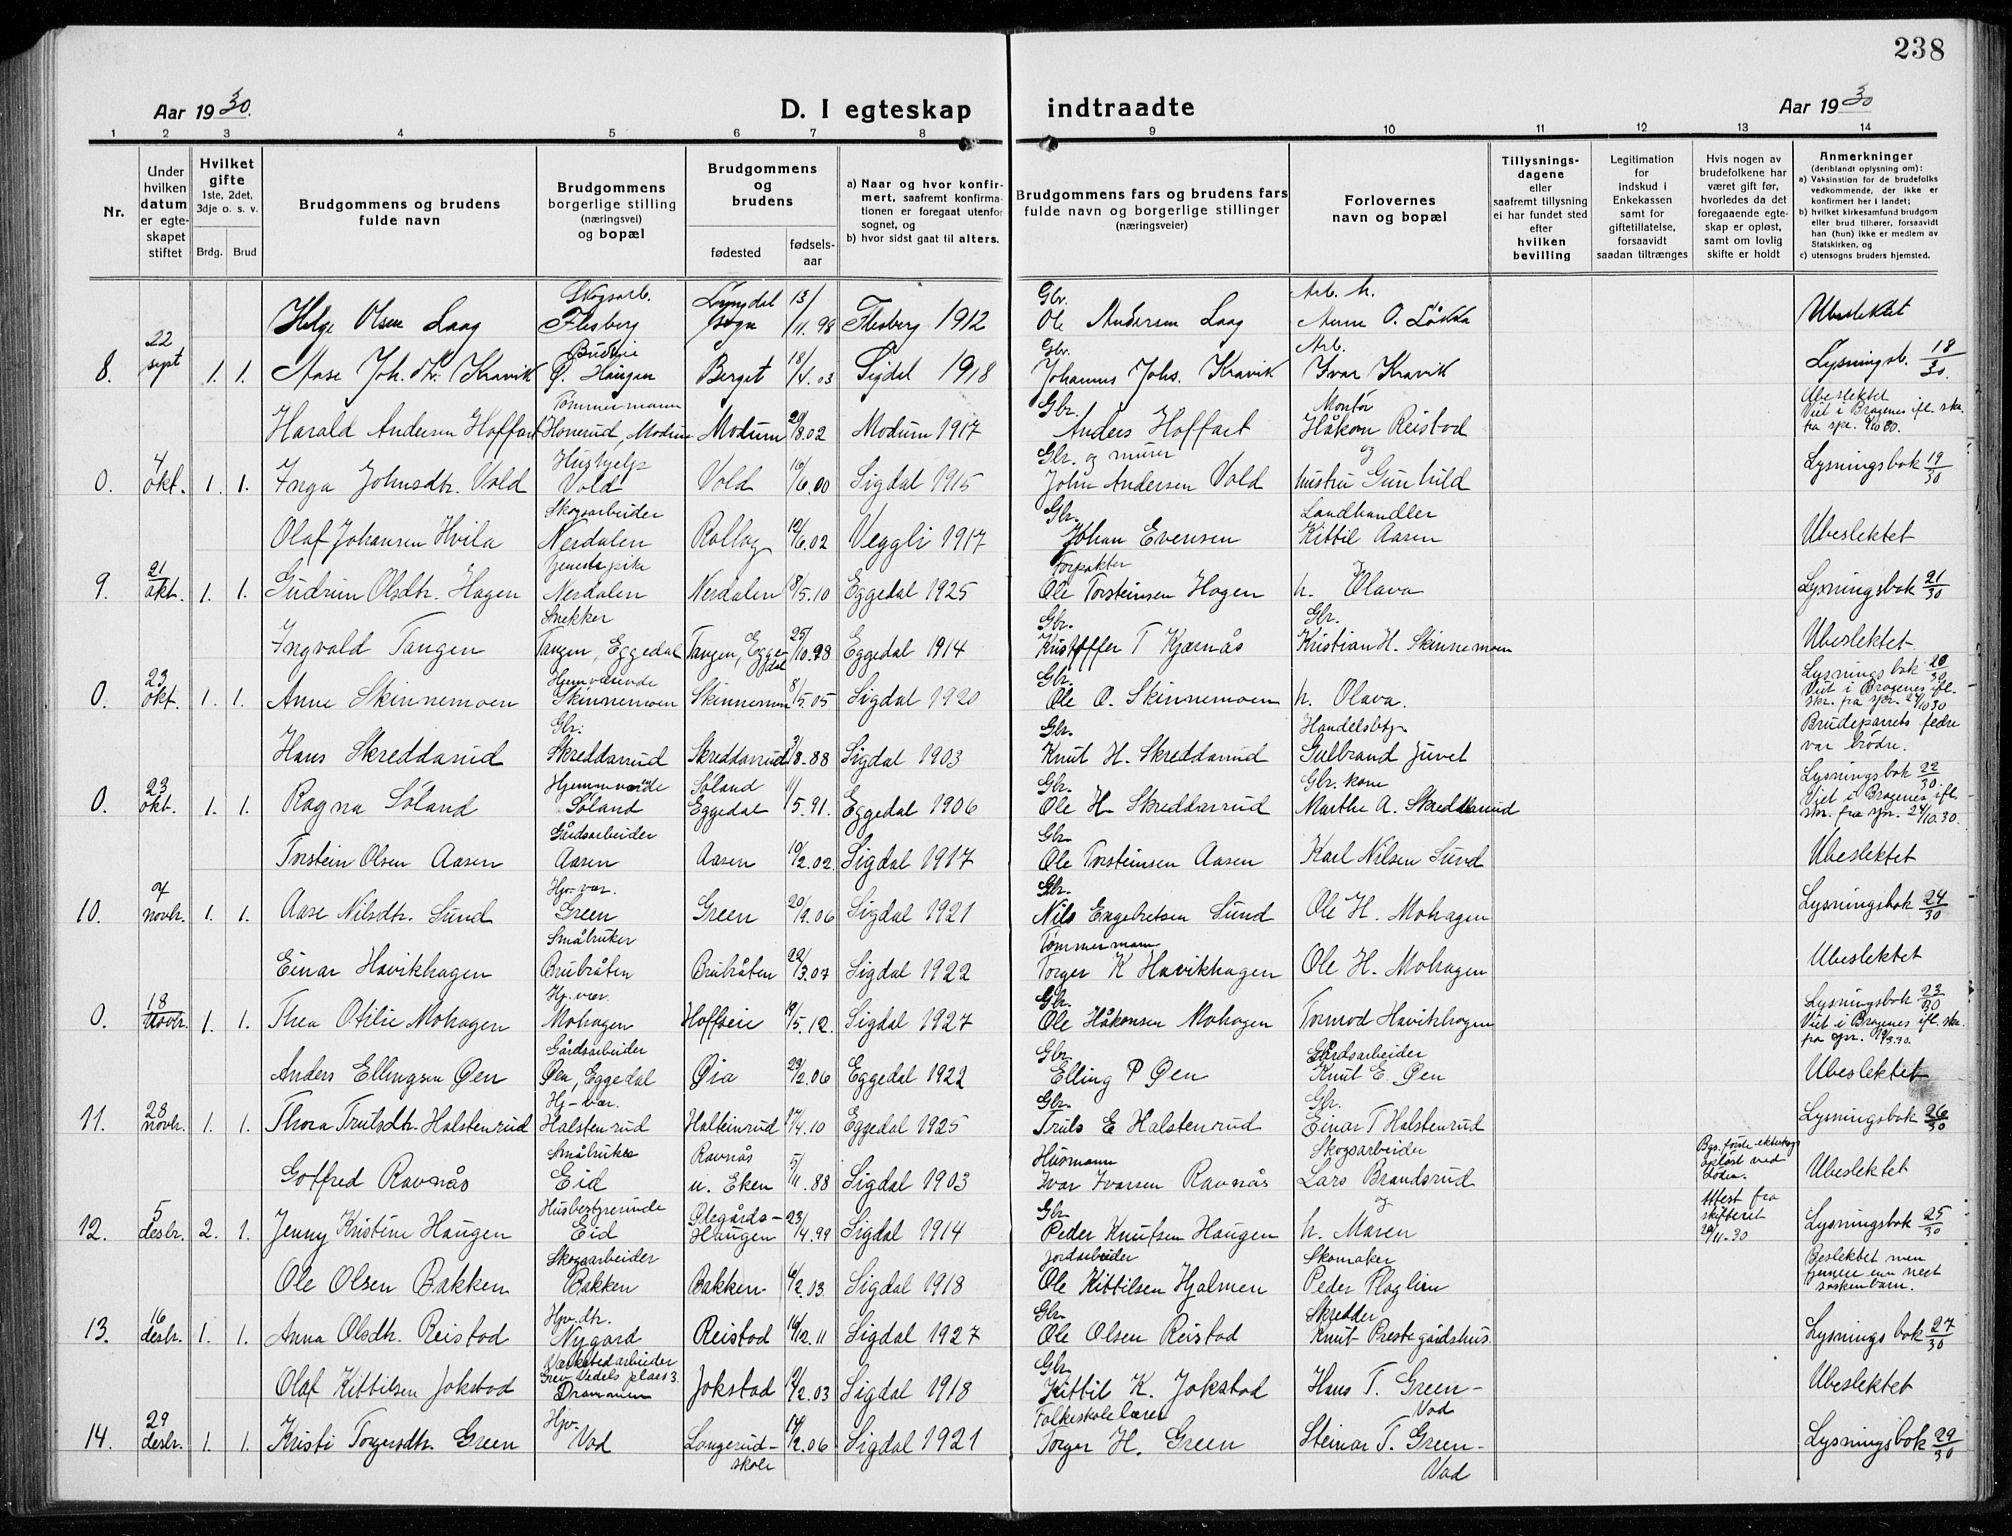 238
Aar 1930.
D. I egteskap indtraadte
Aar 1930
1 2 3 4 5 6 7 8 9 10 11 12 13 14
Nr.
Under hvilken datum er egteskapet stiftet
Hvilket gifte
1ste, 2det, 3dje o. s. v.
Brdg. Brud
Brudgommens og brudens fulde navn
Brudgommens borgerlige stilling (næringsvei) og bopæl
Brudgommens og brudens
fødested
fødselsaar
a) Naar og hvor konfirmert, saafremt konfirmationen er foregaat utenfor sognet, og
b) hvor sidst gaat til alters.
Brudgommens fars og brudens fars fulde navn og borgerlige stillinger (næringsveier)
Forlovernes navn og bopæl
Tillysningsdagene eller saafremt tillysning ei har fundet sted efter hvilken bevilling
Legitimation for indskud i Enkekassen samt for giftetillatelse, forsaavidt saadan tiltrænges
Hvis nogen av brudefolkene har været gift før, hvorledes da det foregaaende egteskap er opløst, samt om lovlig skifte er holdt
Anmerkninger
(deriblandt oplysning om):
a) Vaksination for de brudefolks vedkommende, der ikke er konfirmert her i landet;
b) hvilket kirkesamfund brudgom eller brud tilhører, forsaavidt han (hun) ikke er medlem av Statskirken, og
c) utensogns bruders hjemsted.
Helge Olsen Laag Skogsarb. Flesberg Lyngdal sogn 13/11.98 Flesberg 1912 Gbr. Ole Andersen Laag Ubeslektet
8. 22 sept 1. 1. Aase Joh. Kravik Ø. Haugan Berget 18/ .03 Sigdal 1918 Gbr. Johannes Johs. Kravik Arb. Ivar Kravik Lysningsb. 18/30.
Harald Andersen Hoffart Tømmermann Modum Modum 8.02 Modum 1917 Gbr. Anders Hoffart Montør Håkon Reistad Ubeslektet Viet i Bragenes ifl. skr. fra spr.
0. 4 okt. 1. 1. Inga Johnsdtr. Vold Hushjelp Vold Vold 16/6.00 Sigdal 1915 Gbr. og murer John Andersen Vold og hustru Gunhild Lysningsbok 19/30
Olaf Johansen Hvila Skogsarbeider Nerdalen Rollag 12/6.02 Veggli 1917 Gbr. Johan Evensen Landhandler Kittil Aasen Ubeslektet
9. 21 okt. 1. 1. Gudrun Olsdtr. Hagen Nerdalen Nerdalen 8/5.10 Eggedal 1925 Forpakter Ole Torsteinsen Hagen h. Olava Lysningsbok 21/30
Ingvald Tangen Snekker Tangen, Eggedal Tangen, Eggedal 25/10.98 Eggedal 1914 Gbr. Kristoffer T Kjærnås Gbr. Kristian H. Skinnemoen Ubeslektet
0. 23 okt. 1. 1. Anne Skinnemoen Hjemmeværende Skinnemoen Skinnemoen 8/5.05 Sigdal 1920 Gbr. Ole O. Skinnemoen h. Olava. Lysningsbok 20/30 Viet i Bragenes ifl. skr. fra spr. 24/10 30
Hans Skreddarud Gbr. Skreddarud Skreddarud 8.88 Sigdal 1903 Gbr. Knut H. Skreddarud Gulbrand Juvet Brudeparrets fedre var brødre.
0. 23 okt. 1. 1. Ragna Søland Søland Søland Eggedal 5.91. Eggedal 1906 Gbr. Ole H Skreddarrud Gbr. kone Marthe A. Skreddarud Lysningsbok 22/30. Viet i Bragenes ifl. skr. fra spr. 24/10.30.
Torstein Olsen Aasen Gårdsarbeider Aasen Aasen 10/2.02 Sigdal 1917 Gbr. Ole Torsteinsen Aasen Karl Nilsen Sund Ubeslektet
10. 7 novbr. 1. 1. Aase Nilsdtr. Sund Hjv-vær. Green Green 20/9.06 Sigdal 1921 Gbr. Nils Engebretsen Sund Ole H. Mohagen Lysningsbok 24/30
Einar Havikhagen Småbruker Brubråten Brubråten 22/3.07 Sigdal 1922 Tømmermann Torger K Havikhagen Ole H. Mohagen Ubeslektet
0. 18 novbr. 1. 1. Thea Otilie Mohagen Hj. vær. Mohagen 19/5.12. Sigdal 1927 Gbr. Ole Håkonsen Mohagen Tormod Havikhagen Lysningsbok 23/30 Viet i Bragenes ifl. skr. fra spr.
Anders Ellingsen Øen Gårdsarbeider Øen, Eggedal Øia 2.06 Eggedal 1922 Gbr. Elling P Øen Gårdsarbeider Knut E. Øen Ubeslektet
11. 28 novbr. 1. 1. Thora Trulsdtr. Halstenrud Hj-vær. Halstenrud 17/4.10 Eggedal 1925 Gbr. Truls E Halstenrud Gbr. Einar T Halstenrud Lysningsbok 26/30
Gotfred Ravnås Småbruker Eid Ravnås u. Eken 5/11.88 Sigdal 1903 Husmann Ivar Ivarsen Ravnås Skogsarbeider Lars Brandsrud Bgs. første ekteskap opløst ved døden. Ubeslektet
12. 5 desbr. 2. 1. Jenny Kristine Haugen Husbestyrerinde Eid Haugen 23/4.99 Sigdal 1914 Gbr Peder Knutsen Haugen og h. Maren Attest fra skifteret 11-30 Lysningsbok 25/30
Ole Olsen Bakken Skogsarbeider Bakken Bakken 6/2.03 Sigdal 1918 Jordarbeider Ole Kittilsen Hjalmen Skomaker Peder Haglien Beslektet men fjernere enn nest søskenbarn.
13. 16 desbr. 1. 1. Anna Olsdtr. Reistad Hjv. dtr. Nygard Reistad 12.11 Sigdal 1927 Gbr. Ole Olsen Reistad Skredder Knut Prestegårdshus. Lysningsbok 27/30
Olaf Kittilsen Jokstad Verkstedarbeider Grev Wedels plass 3. Drammen Jokstad 2.03 Sigdal 1918 Gbr Kittil K. Jokstad Hans T. Green - Vad Ubeslektet
14. 29 desbr. 1. 1. Kristi Torgersdtr. Green Hjv. Vad Langerud-skole 14/2.06 Sigdal 1921 Folkeskolelærer Torger H. Green Steinar T. Green - Vad Lysningsbok 29/30